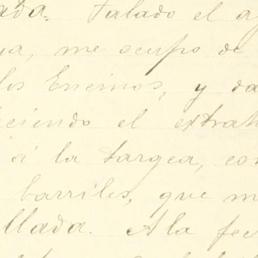 ada. Talado el a
ua, me ocupo de
los Encinos, y da
iciendo el extra
i la targea, con
barriles, que m
llada. A la fec